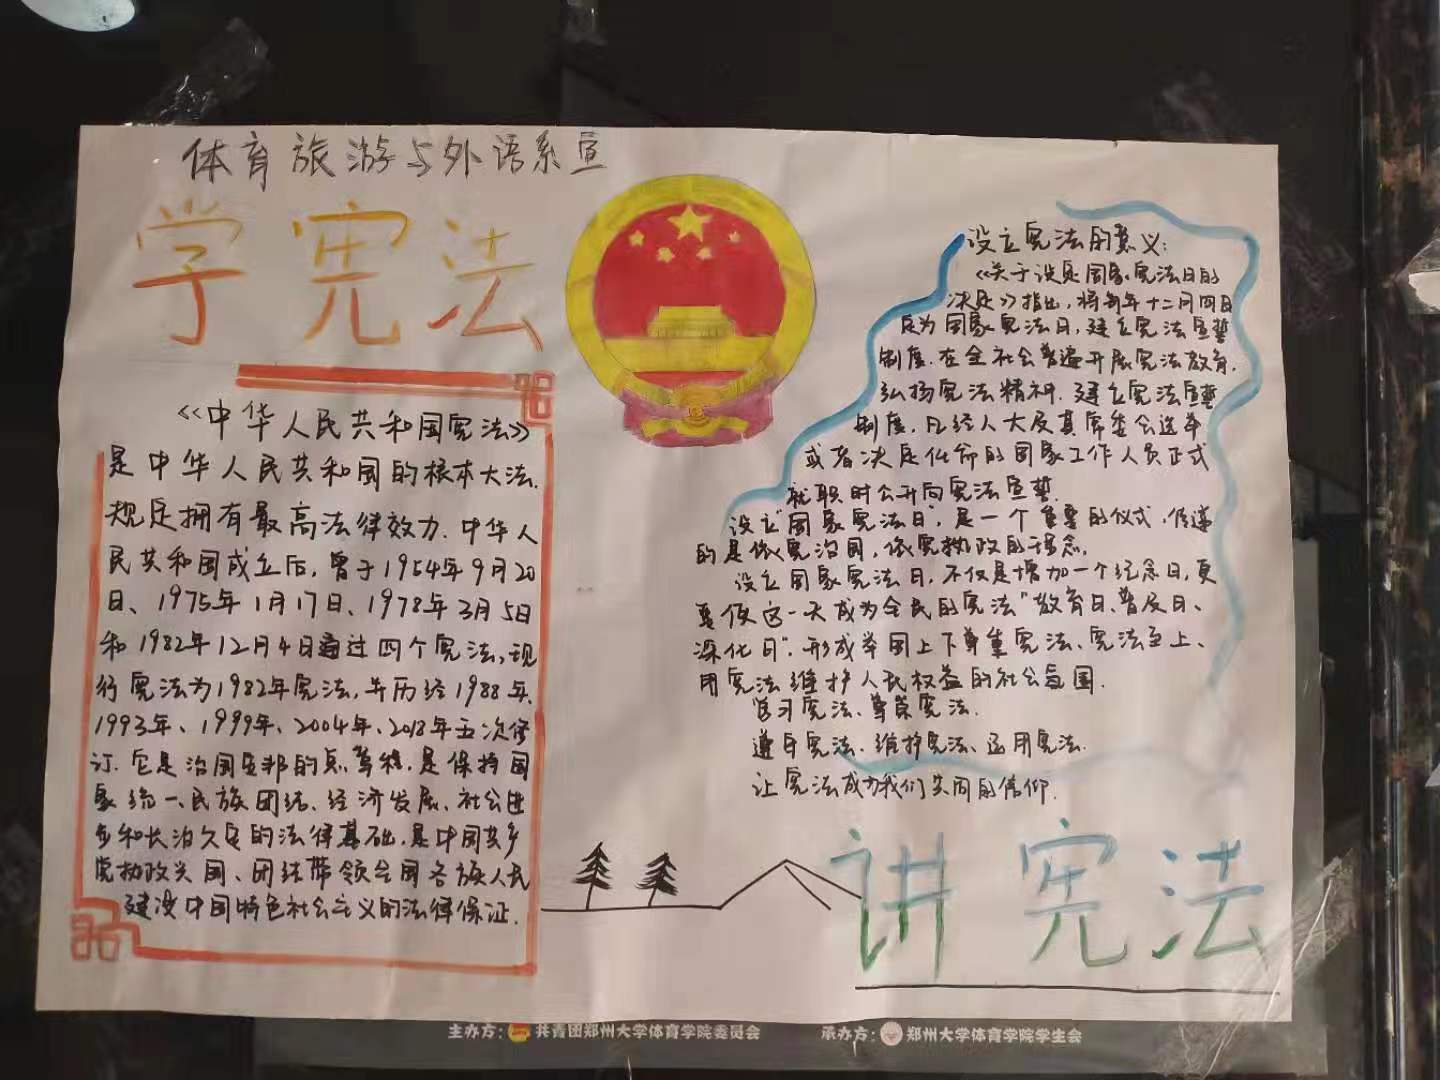 体育旅游与外语系宣
学宪法
《中华人民共和国宪法》
是中华人民共和国的根本大法、
规定拥有最高法律效力.中华人
民共和国成立后,曾于1954年9月20
日、1975年1月17日、1978年3月5日
和1982年12月4日通过四个宪法,现
行宪法为1982年宪法,并历经1988年、
1993年、1999年、2004年、2018年五次修
订.它是治国安邦的总章程,是保持国
家统一、民族团结、经济发展、社会进
步和长治久安的法律基础,是中国共产
党执政兴国、团结带领全国各族人民
建设中国特色社会主义的法律保证.
设立宪法的意义:
《关于设定国家宪法日的
决定》指出,将每年十二月四日
定为国家宪法日,建立宪法宣誓
制度.在全社会普遍开展宪法教育,
弘扬宪法精神.建立宪法宣誓
制度,凡经人大及其常委会选举
或者决定任命的国家工作人员正式
就职时公开向宪法宣誓.
设立"国家宪法日",是一个重要的仪式,传递
的是依宪治国,依宪执政的理念.
设立国家宪法日,不仅是增加一个纪念日,更
要使这一天成为全民的宪法"教育日、普及日、
深化日",形成举国上下尊重宪法、宪法至上、
用宪法维护人民权益的社会氛围.
学习宪法、尊崇宪法.
遵守宪法、维护宪法、运用宪法.
让宪法成为我们共同的信仰.
讲宪法
主办方: 共青团郑州大学体育学院委员会 承办方: 郑州大学体育学院学生会